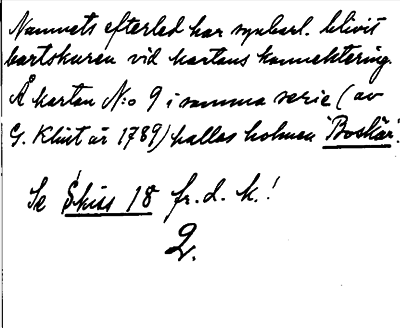 Namnets efterled har synbarl. blivit
bortskuren vid kartans konnektering.
Å kartan N:o 9 i samma serie (av
G. Klint år 1789) kallas holmen "Boskär".
Se Skiss 18 fr. d. k.!
2.